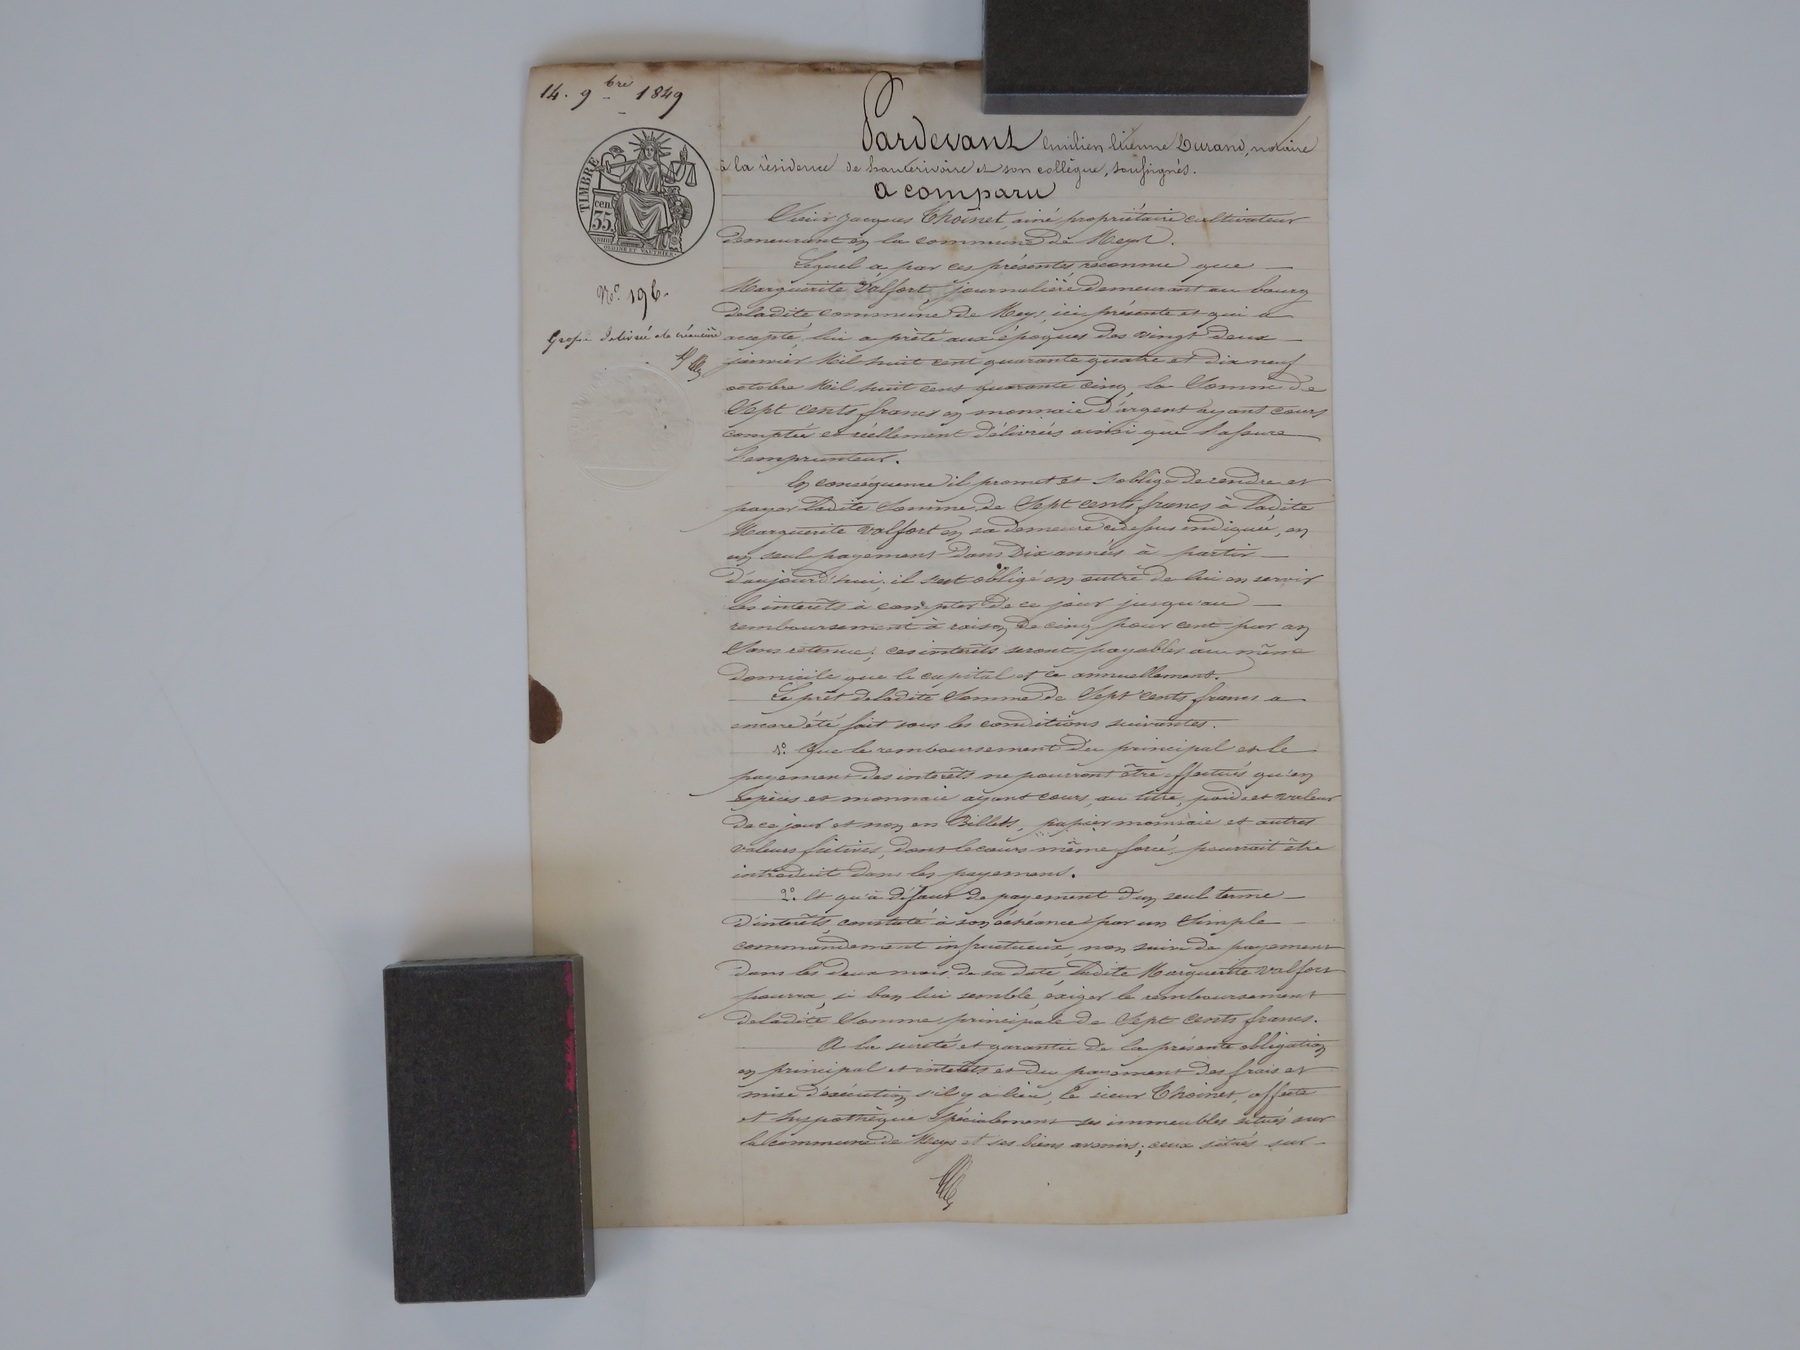 14. 9bre 1849
TIMBRE
cen.
35
N.° 196.
Grosse delivrée à la créancière
Pardevant Emilien Etienne Durand, notaire
à la résidence de hauterivoire et son collègue, soussignés.
a comparu
Sieur Jacques Thoinet, ainé, propriétaire cultivateur
demeurant en la commune de Meys.
Lequel a par ces présentes reconnu que
Marguerite Valfort, journalière demeurant au bourg
deladite commune de Meys, ici présente et qui a
accepté, lui a prêté aux époques des vingt deux
janvier Mil huit cent quarante quatre et dix neuf
octobre Mil huit cent quarante cinq, la Somme de
Sept cents francs en monnaie d'argent ayant cours
comptée et réellement délivrées ainsi que l'assure
l'emprunteur.
En conséquence il promet et s'oblige de rendre et
payer ladite Somme de Sept cents francs à ladite
Marguerite Valfort en sa demeure cidessus indiquée, en
un seul payement dans Dix années à partir
d'aujourd'hui; il s'est obligé en outre de lui en servir
les intérêts à compter de ce jour jusqu'au
remboursement à raison de cinq pour cent par an
Sans retenue; ces intérêts seront payables au même
domicile que le capital et ce annuellement.
Le prêt deladite Somme de Sept cents francs a
encore été fait sous les conditions suivantes.
1.° Que le remboursement du principal et le
payement des intérêts ne pourront être effectués qu'en
Espèces et monnaie ayant cours, au titre, poids et valeur
de ce jour et non en Billets, papier monnaie et autres
valeurs fictives, dont le cours même forcé, pourrait être
introduit dans les payements.
2.° Et qu'à défaut de payement d'un seul terme
d'intérêts, constaté à son échéance par un Simple
commandement infructueux, non suivi de payement
dans les deux mois de sa date, ladite Marguerite Valfort
pourra, si bon lui semble, éxiger le remboursement
deladite Somme principale de Sept cents francs.
A la sureté et garantie de la présente obligation
en principal et intérêts et du payement des frais et
mise d'exécution s'il y a lieu, le sieur Thoinet, affecte
et hypothèque Spécialement ses immeubles situés sur
la commune de Meys et ses biens avenirs; ceux situés sur